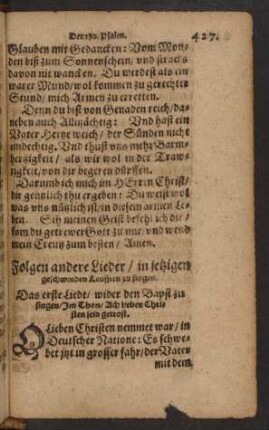 Der 130. Psalm. 427.
Glauben mit Gedancken: Vom Mon-
den biß zum Sonnenschein, vnd stracks
davon nit wancken. Du werdest als ein
warer Mund/wol kommen zu gerechter
Stund/ mich Armen zu erretten.
Denn du bist von Genaden reich/da-
neben auch Allmächtig: Vnd hast ein
Vater Hertze weich/ der Sünden nicht
Vnd thust vns mehr Barm-
hertzigkeit / als wir wol in der Traw-
rigkeit/von dir begeren dürffen.
Darumb ich mich im HErrn Christ/
dir gentzlich thu ergeben: Du weist wol
was vns nützlich ist/in diesem armen Le-
ben. Sih meinen Geist befehl ich dir/
kom du getrewer Gott zu mir/vnd wend
mein Creutz zum besten/ Amen.
Folgen andere Lieder/ in jetzigen
geschwinden Leufften zu singen.
Das erste Liedt/ wider den Bapst zu
singen/Im Thon/ Ach lieben Chri-
sten seid getrost.
O Lieben Christen nemmet war/ in
Deutscher Natione: Es schwe-
bet jtzt in grosser fahr/der Vater
mit dem